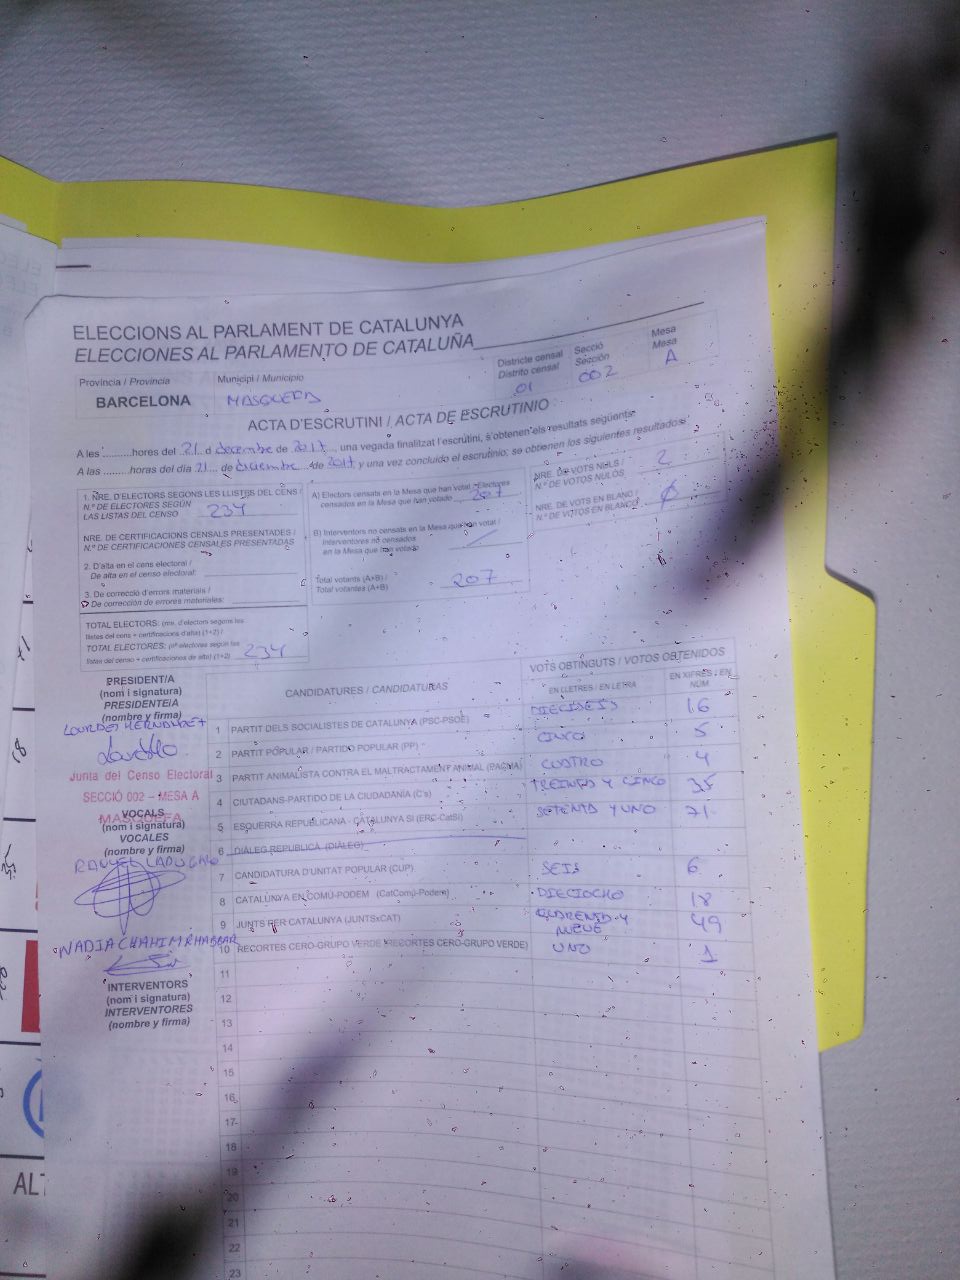 ELECCIONS AL PARLAMENT DE CATALUNYA
ELECCIONES AL PARLAMENTO DE CATALUÑA
Provincia / Provincia
BARCELONA
Municipi / Municipio
MASQUEFA
Districte censal
Distrito censal
01
Secció
Sección
002
Mesa
Mesa
A
ACTA D'ESCRUTINI / ACTA DE ESCRUTINIO
A les .........hores del 21 d desembre de 2017, una vegada finalitzat l'escrutini, s'obtenen els resultats següents
A las .........horas del día 21 de diciembre de 2017 y una vez concluido el escrutinio, se obtienen los siguientes resultados:
1. NRE. D'ELECTORS SEGONS LES LLISTES DEL CENS /
N.º DE ELECTORES SEGÚN
LAS LISTAS DEL CENSO
234
NRE. DE CERTIFICACIONS CENSALS PRESENTADES /
N.º DE CERTIFICACIONES CENSALES PRESENTADAS
2. D'alta en el cens electoral /
De alta en el censo electoral:
3. De correcció d'errors materials /
De corrección de errores materiales:
TOTAL ELECTORS: (nre. d'electors segons les
llistes del cens + certificacions d'alta) (1+2) /
TOTAL ELECTORES: (nº electores según las
listas del censo + certificaciones de alta) (1+2)
234
A) Electors censats en la Mesa que han votat / Electores
censados en la Mesa que han votado
207
B) Interventors no censats en la Mesa que han votat /
Interventores no censados
en la Mesa que han votado
Total votants (A+B) /
Total votantes (A+B)
207
NRE. DE VOTS NULS /
N.º DE VOTOS NULOS
2
NRE. DE VOTS EN BLANC /
N.º DE VOTOS EN BLANCO
Ø
PRESIDENT/A
(nom i signatura)
PRESIDENTE/A
(nombre y firma)
LOURDES HERNANDEZ
Junta del Censo Electoral
SECCIÓ 002 – MESA A
MASQUEFA
VOCALS
(nom i signatura)
VOCALES
(nombre y firma)
INTERVENTORS
(nom i signatura)
INTERVENTORES
(nombre y firma)
CANDIDATURES / CANDIDATURAS
VOTS OBTINGUTS / VOTOS OBTENIDOS
EN LLETRES / EN LETRA
EN XIFRES / EN NÚM
1 PARTIT DELS SOCIALISTES DE CATALUNYA (PSC-PSOE) DIECISEIS 16
2 PARTIT POPULAR / PARTIDO POPULAR (PP) CINCO 5
3 PARTIT ANIMALISTA CONTRA EL MALTRACTAMENT ANIMAL (PACMA) CUATRO 4
4 CIUTADANS-PARTIDO DE LA CIUDADANÍA (C's) TREINTA Y CINCO 35
5 ESQUERRA REPUBLICANA - CATALUNYA SÍ (ERC-CatSí) SETENTA Y UNO 71
6 DIÀLEG REPUBLICÀ (DIÀLEG)
7 CANDIDATURA D'UNITAT POPULAR (CUP) SEIS 6
8 CATALUNYA EN COMÚ-PODEM (CatComú-Podem) DIECIOCHO 18
9 JUNTS PER CATALUNYA (JUNTSxCAT) CUARENTA Y NUEVE 49
10 RECORTES CERO-GRUPO VERDE (RECORTES CERO-GRUPO VERDE) UNO 1
11
12
13
14
15
16
17
18
19
20
21
22
23